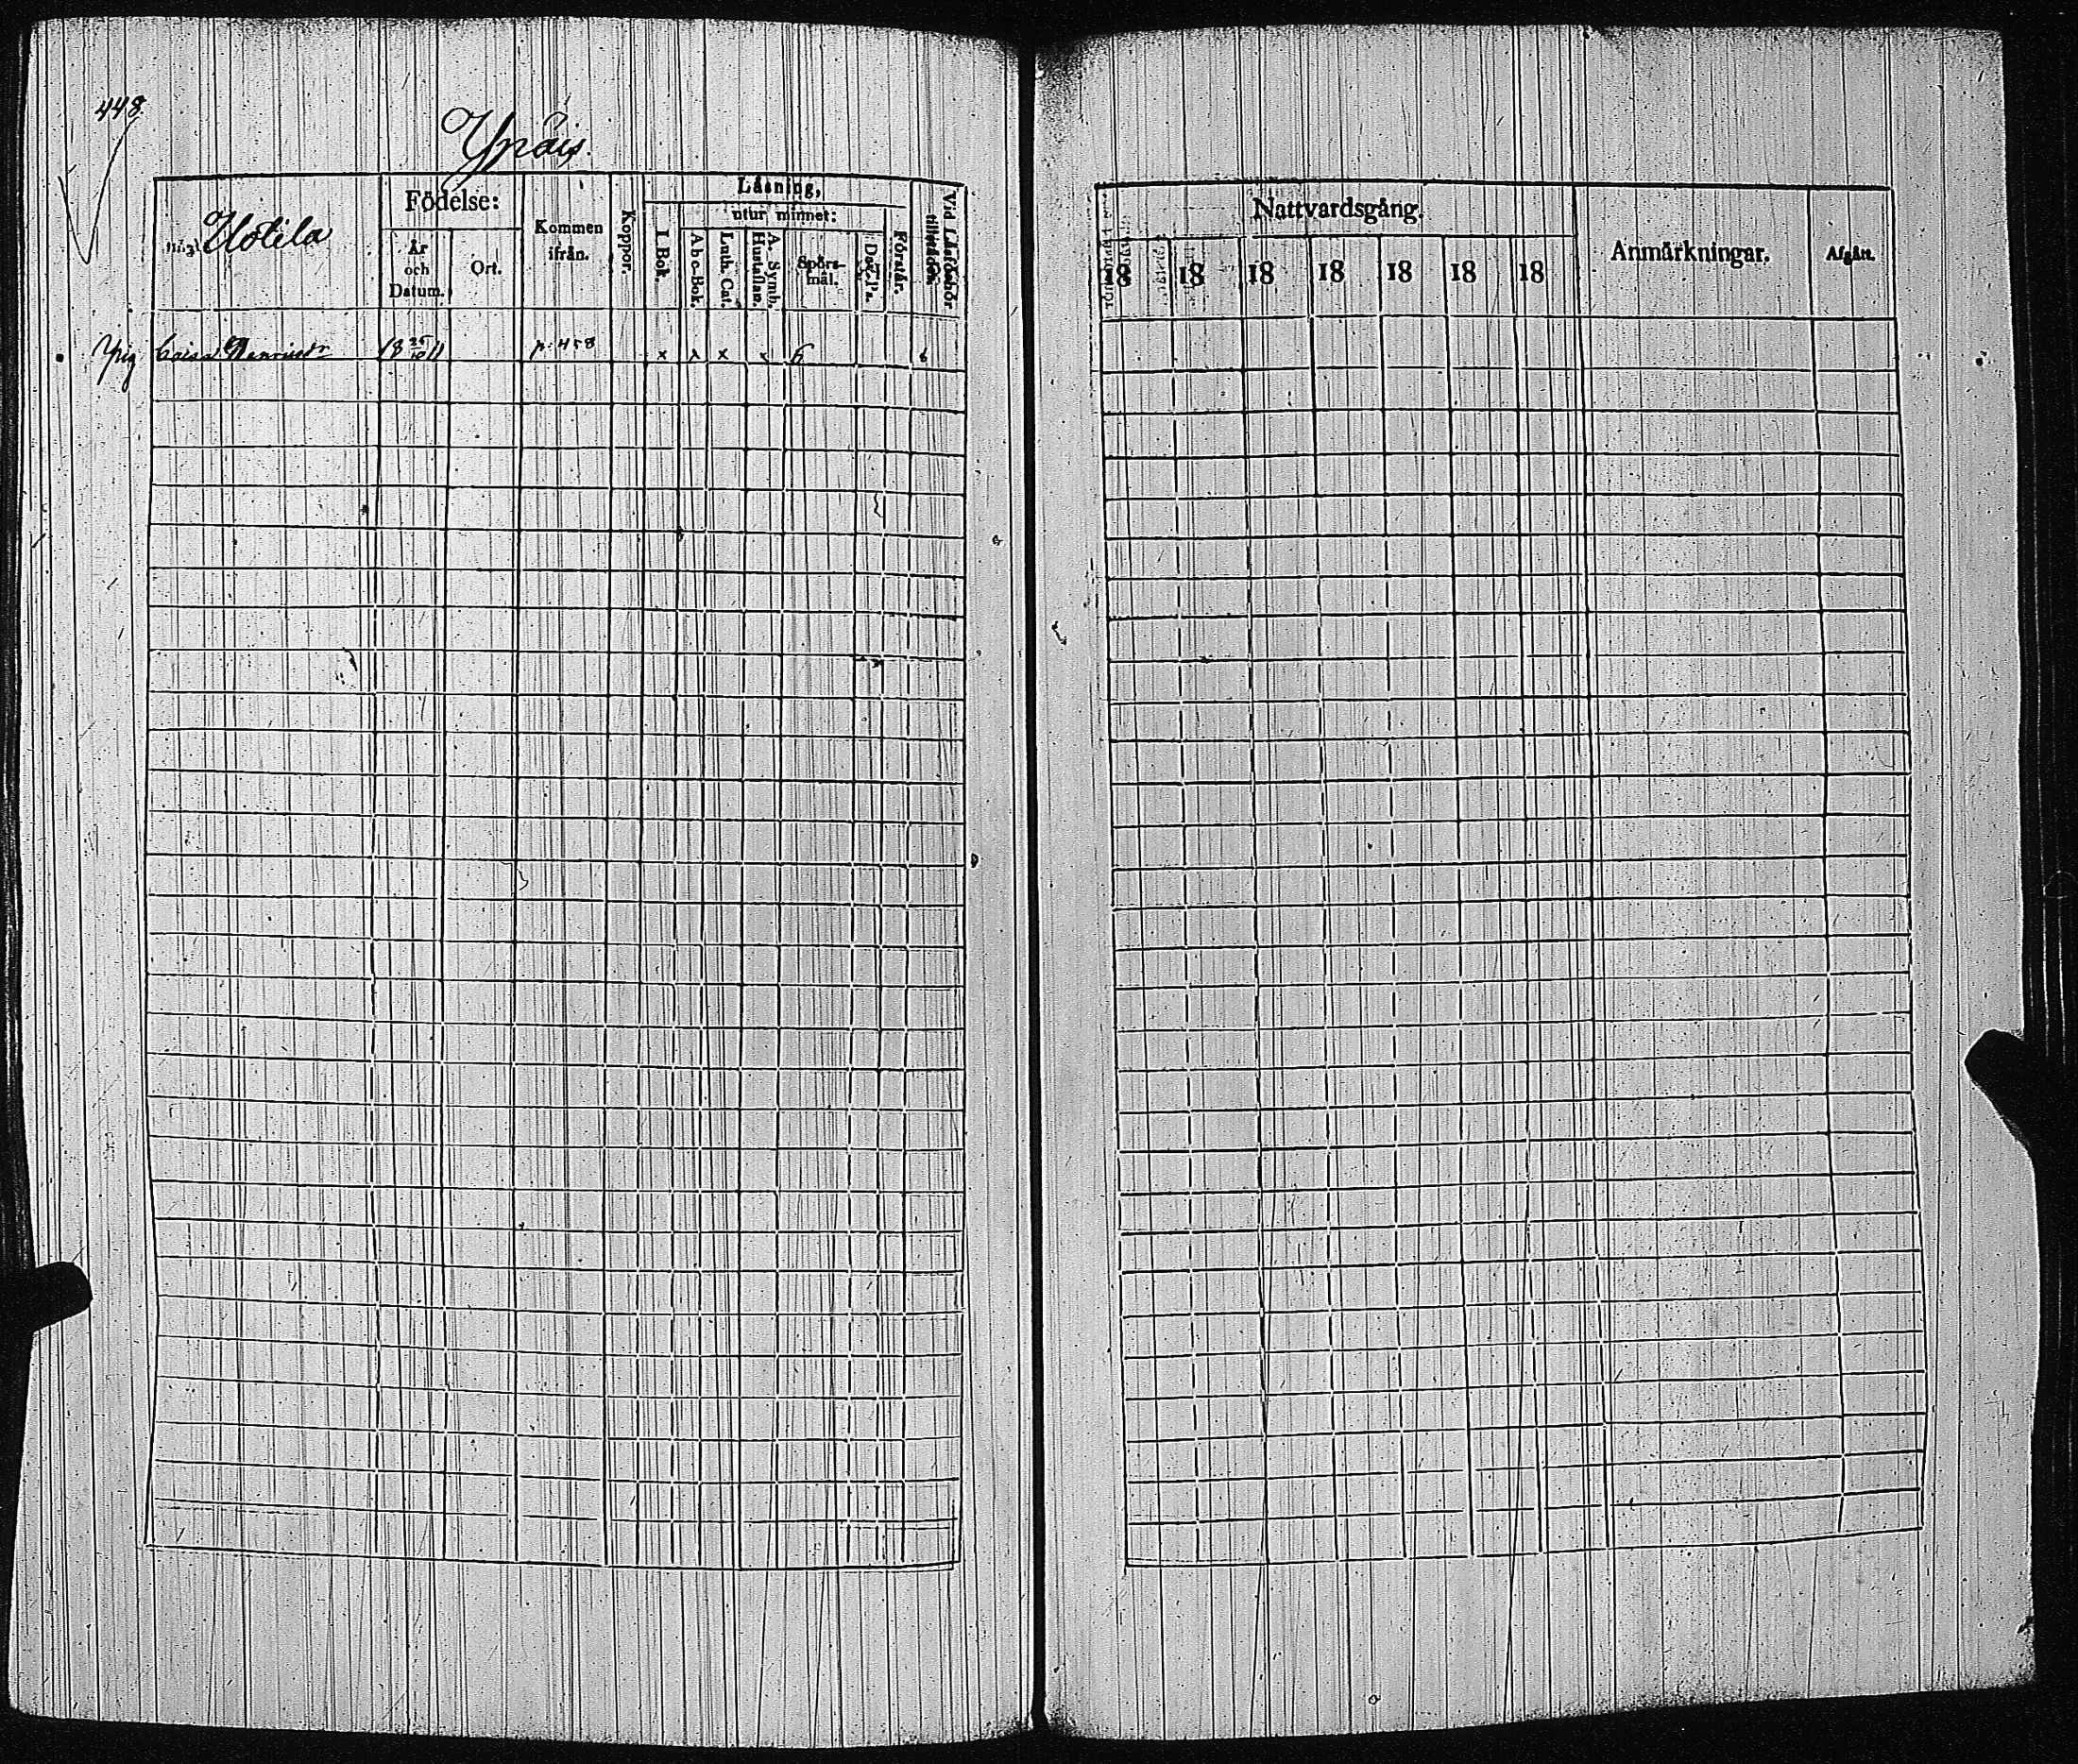 448.
Ypäis.
N:3 Uotila
Födelse:
År och Datum.
Ort.
Kommen ifrån.
Koppor.
Läsning,
utur minnet:
I Bok.
Abc-Bok.
Luth. Cat.
A. Symb. Hustaflan.
Spörs-mål.
Förstår.
Vid Läsförhör
Pig Caisa Henricsdr 18 25/10 11 p: 458 x x x x 6 6
Nattvardsgång.
18 18 18 18 18 18 18
Anmärkningar.
Afgått.